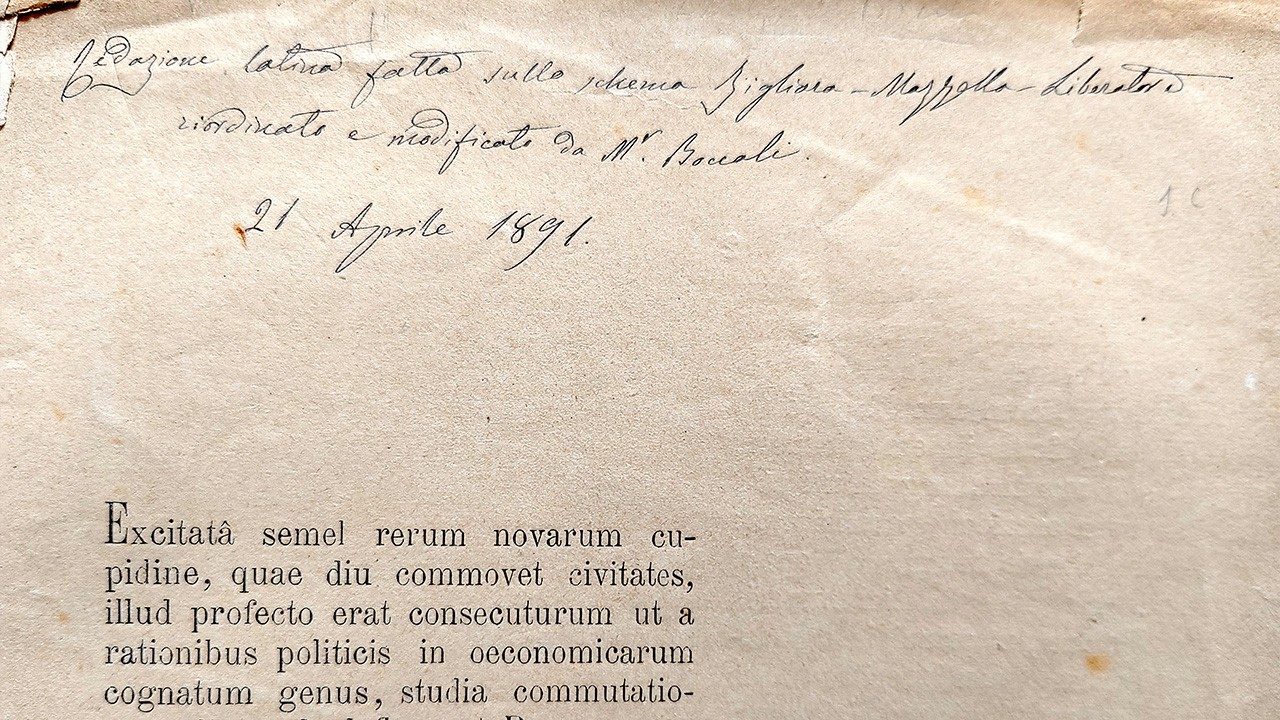 Redazione latina fatta sullo schema Zigliara - Mazzella - Liberatore
riordinato e modificato da Mr. Boccali.
21 Aprile 1891.
Excitatâ semel rerum novarum cu-
pidine, quae diu commovet civitates,
illud profecto erat consecuturum ut a
rationibus politicis in oeconomicarum
cognatum genus, studia commutatio-